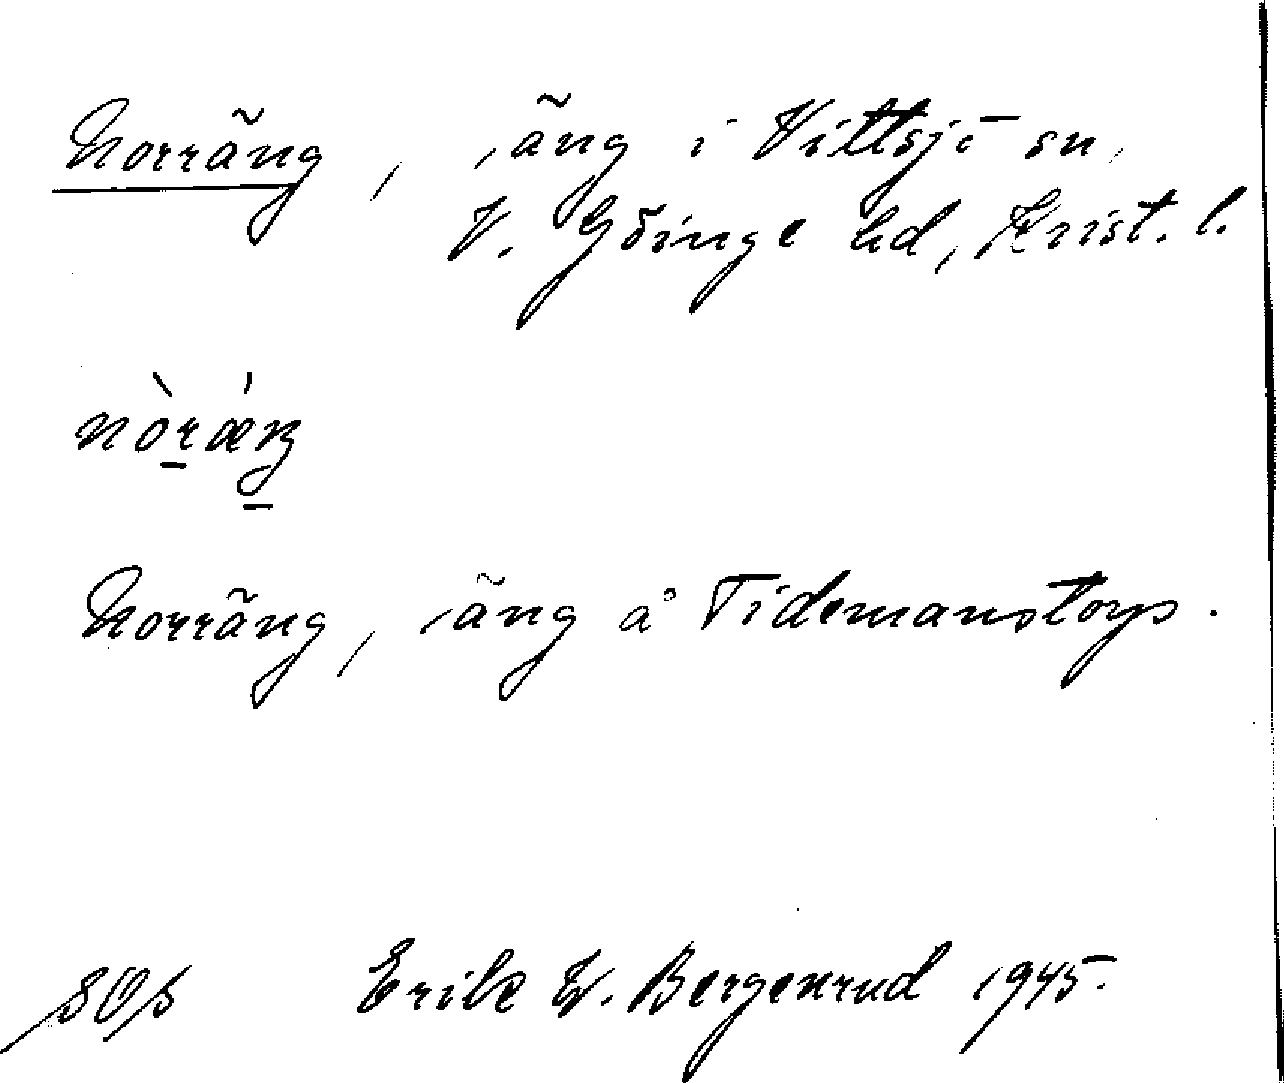 Norräng, äng i Vittsjö sn,
V. Göinge hd, Krist. l.
nòræ´ŋ
Norräng, äng å Tidemanstorp.
Erik W. Bergenrud 1945.